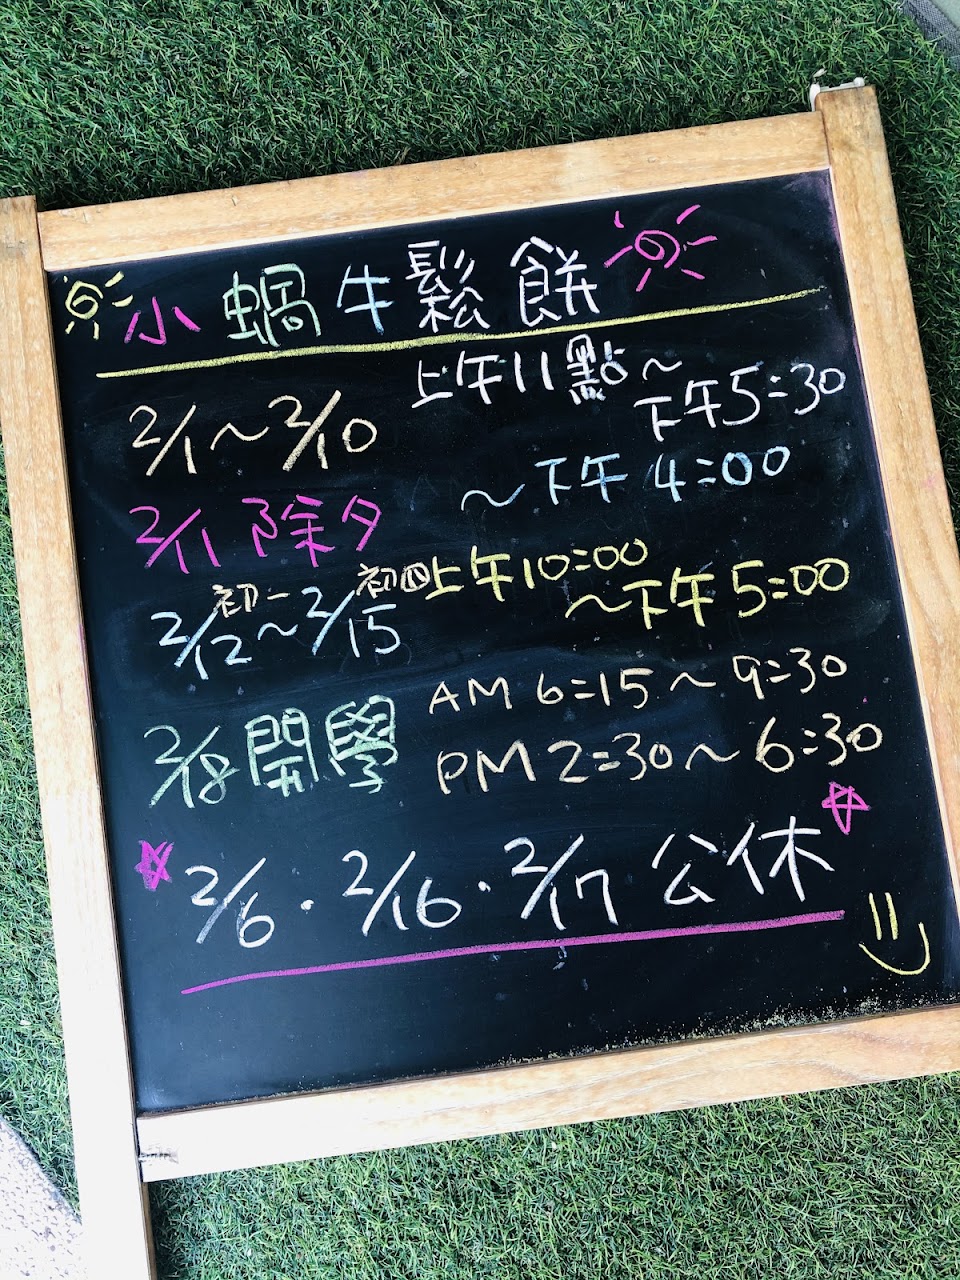 小蝸牛鬆餅
2/1~2/10 上午11點~下午5:30
2/11除夕 ~下午4:00
2/12初一~2/15初四 上午10:00~下午5:00
2/18開學 AM 6:15~9:30
PM 2:30~6:30
2/6·2/16·2/17公休